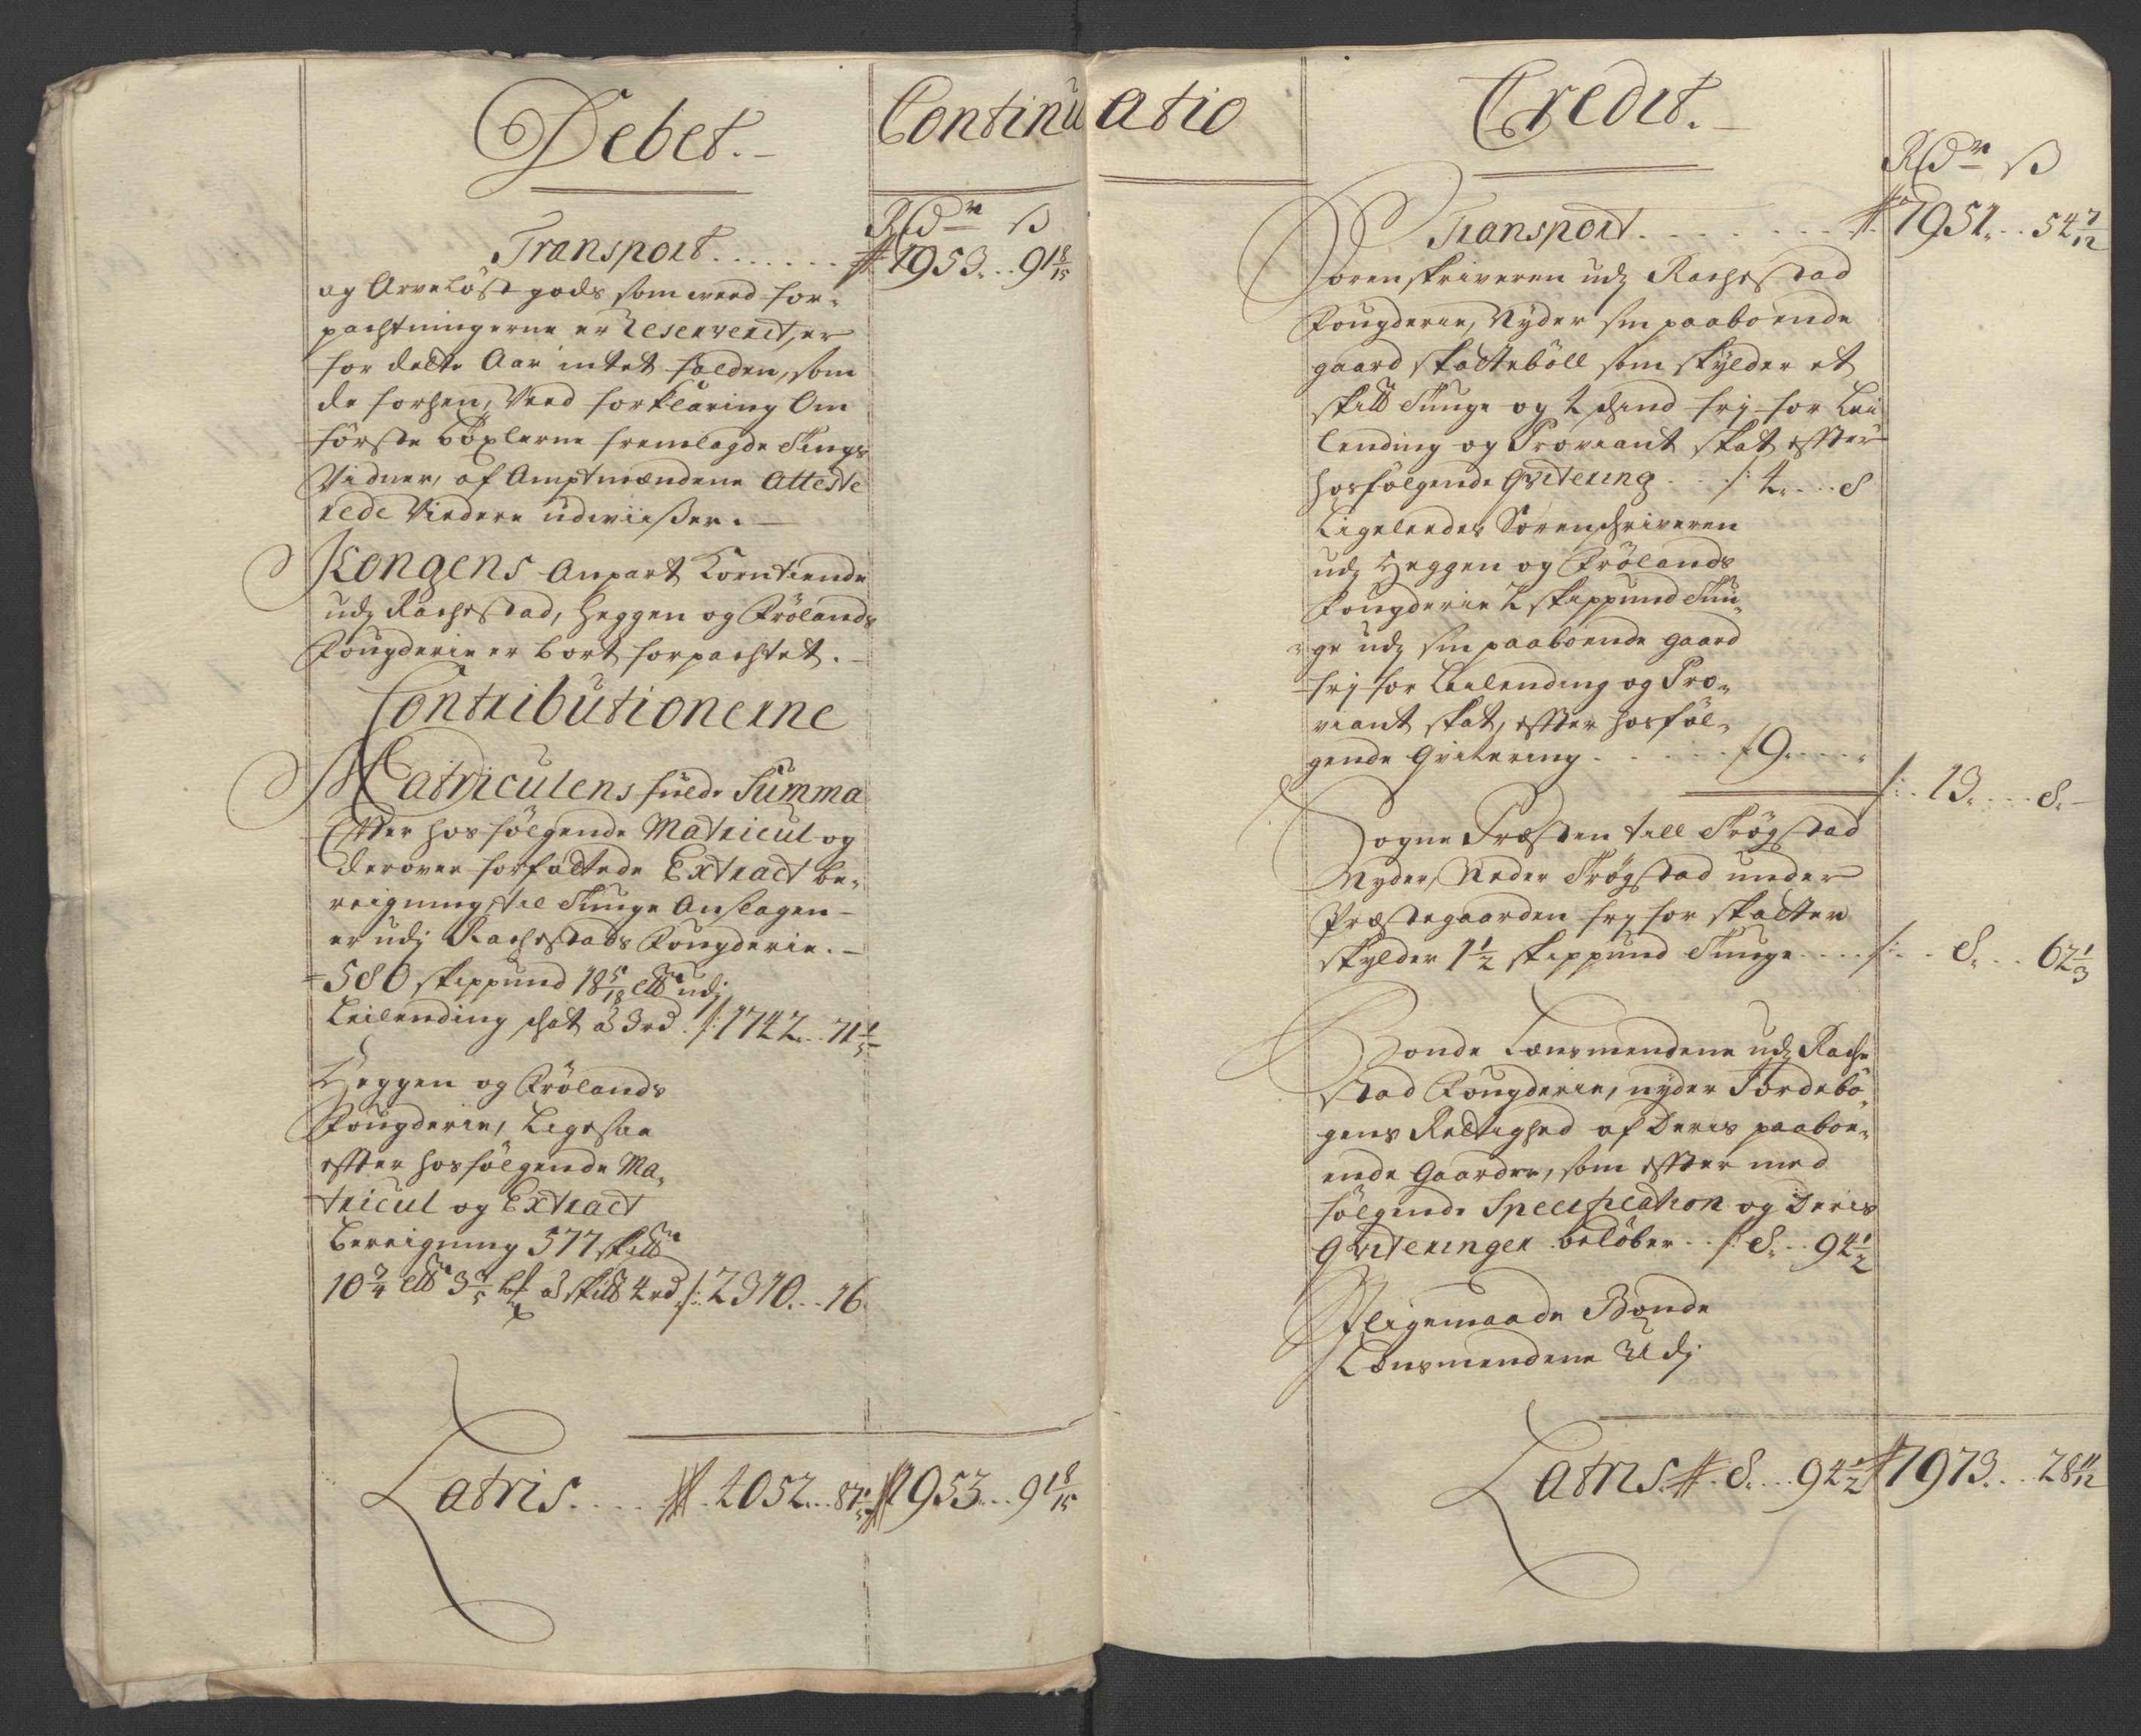 Debet.
Continuatio
Rdr ß
Transport....... 1953...91 8/15
og Arveløst gods som med for-
pachtningerne er Reserverit, er
for dette Aar intet falden, som
de forhen, Ved forklaring Om
første böxlerne fremlagde Tings
Vidner, af Amptmændene Atteste
rede Viedere udwiißer.
Kongens Anpart Korntiende
udj Rachestad, Heggen og Frölands
Fougderie er bort forpachtet.
Contributionerne
Matriculens fulde Summa
Effter hosfölgende Matricul og
derover forfattede Extract be-
reigning, til Tunge Anslagen
er udj Rachestads Fougderie.
580 skippund 18 5/18 udj
Leilending skat a 3 rd. 1742...71 1/5
Heggen og Frölands
Fougderie, Ligesaa
effter hosfölgende Ma-
tricul og Extract
Bereigning 577
10 3/4 3 3/5 a 4 rd 2310...16
Latris..... 4052...87 1/5 1953...91 8/15
Credit.
Rdr ß
Transport. 1951...54 7/12
Sorenskriveren udj Rachestad
Fougderie, Nyder sin paaboende
gaard skattebøll som skylder et
Tunge og fri for Lei
lending og Proviant skat effter
hosfölgende Qvitering 4...8
Ligeleedes Sorenschriveren
udj Heggen og Frölands
Fougderie 2 skippund Tun-
ge udj sin paaboende gaard
frj for Leilending og Pro-
viant skat, effter hosföl-
gende Qvitering 9
13....8.
Sogne Præsten till Trøgstad
Nyder, Neder Trøgstad under
Præstegaarden frj for skatter
skylder 1 1/2 skippund Tunge.... 8...62 1/3
Bonde Lensmendene udj Rache
stad Fougderie, nyder Jordebö-
gens Rettighed af Deris paabo-
ende Gaarder, som effter med
følgende Specification og Deris
Qviteringer belöber.. 8...94 1/2
I ligemaade Bonde
Lensmendene Udj
Latris. 8...94 1/2 1973...28 11/12